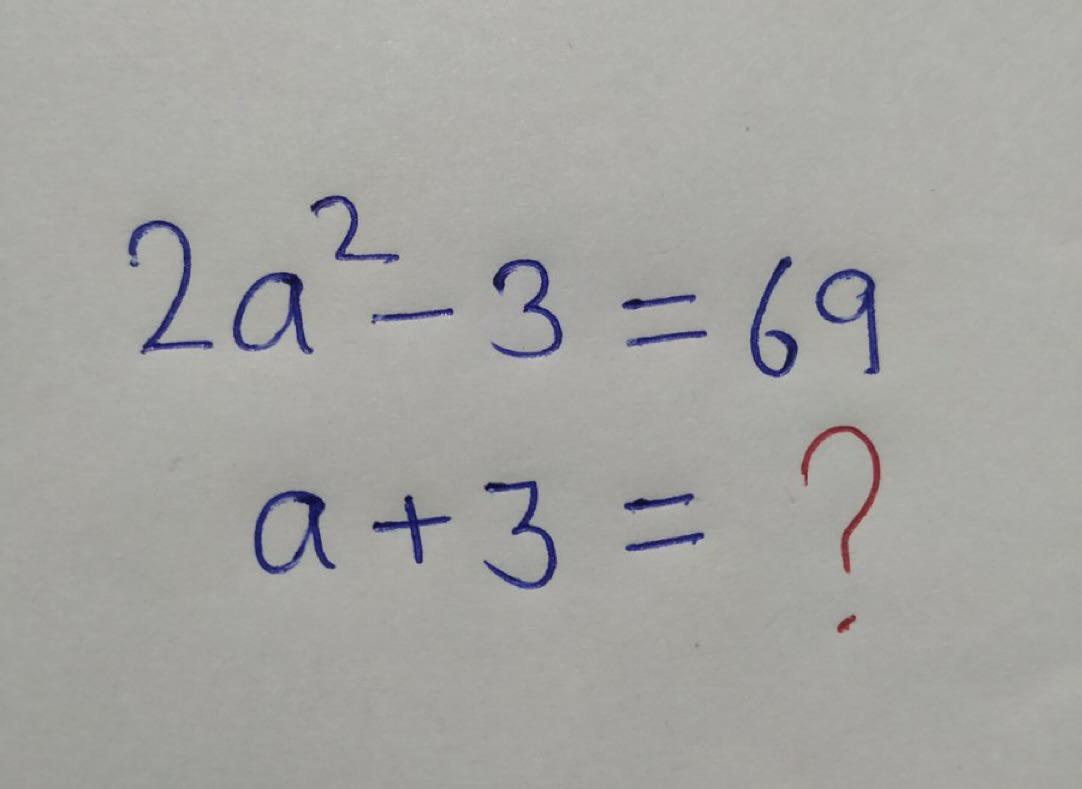 2a² - 3 = 69
a + 3 = ?